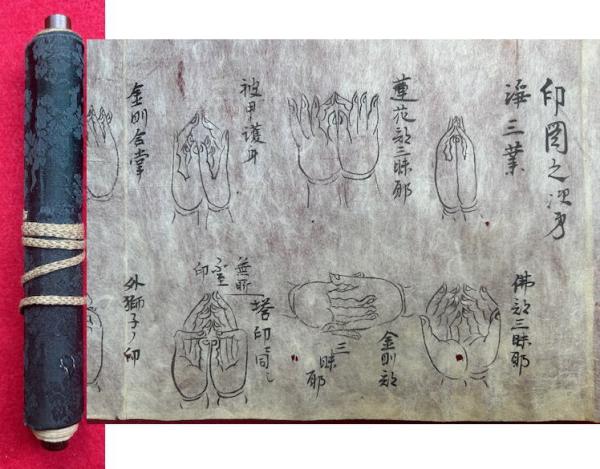 印図之次第
淨三業
佛部三昧耶
蓮花部三昧耶
金剛部
三昧耶
被甲護身
無所
不至
印
塔印ニ同之
金剛合掌
外獅子ノ印